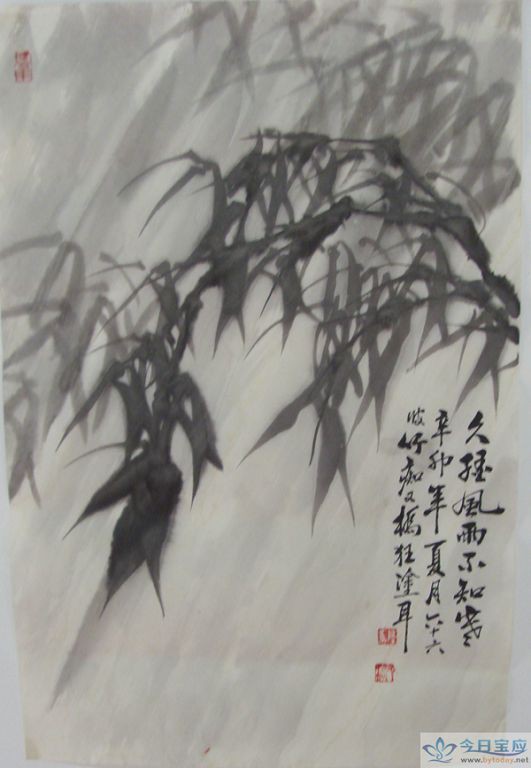 久经風雨不知寒
辛卯年夏月六十六
歲竹痴又橋狂塗耳
今日宝应
www.bytoday.net